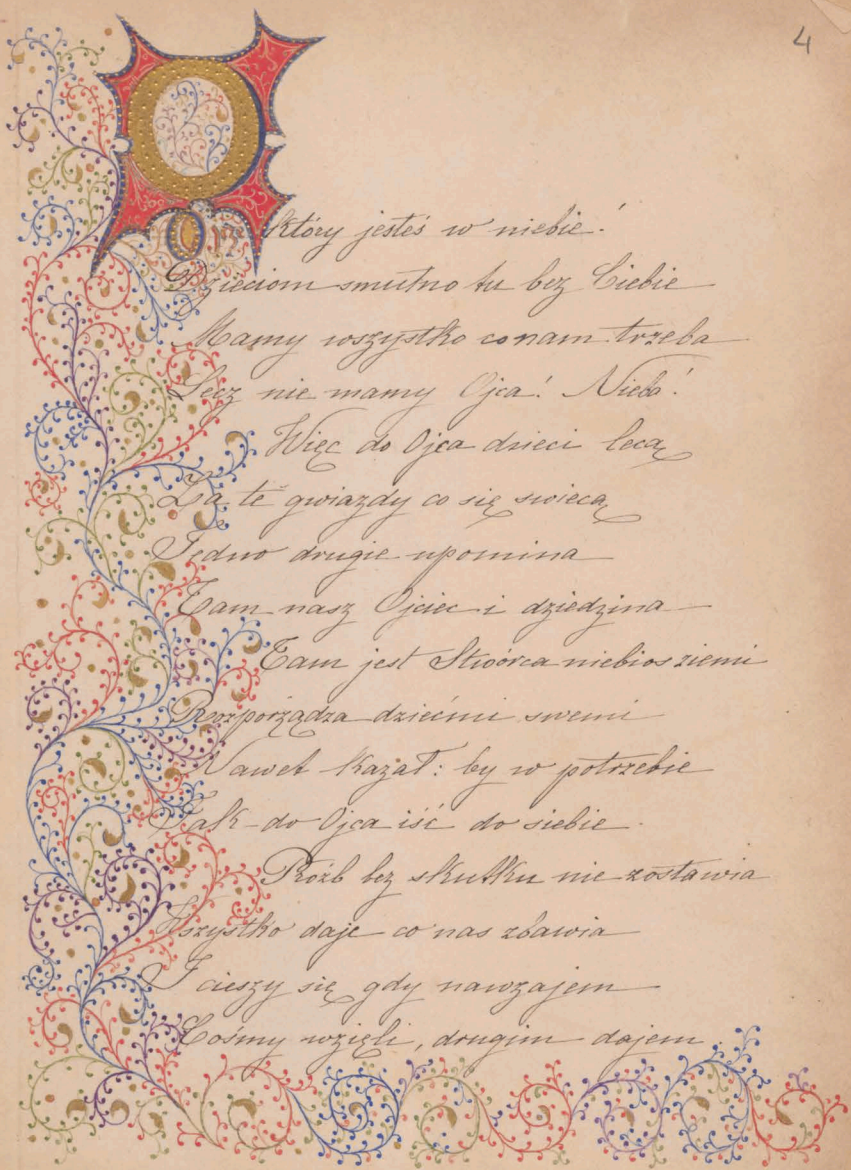 4
On, który jesteś w niebie!
Dzieciom smutno tu bez Ciebie
Mamy wszystko co nam trzeba
Lecz nie mamy Ojca! Nieba!
Więc do Ojca dzieci lecą
Za te gwiazdy co się swiecą
Jedno drugie upomina
Tam nasz Ojciec i dziedzina
Tam jest Stwórca niebios ziemi
Rozporządza dziećmi swemi
Nawet kazał: by w potrzebie
Jak do Ojca iść do siebie
Próżb bez skutku nie zostawia
Wszystko daje co nas zbawia
I cieszy się gdy nawzajem
Cośmy wzięli, drugim dajem